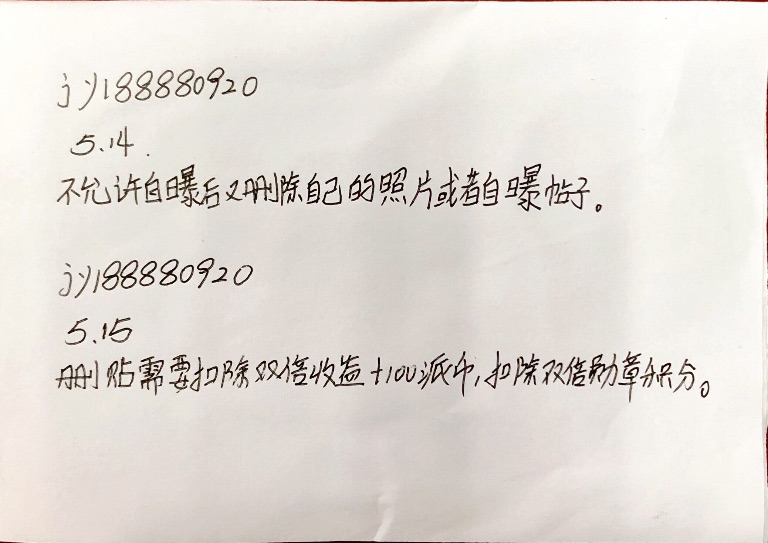 jy188880920
5.14
不允许自曝后又删除自己的照片或者自曝帖子。
jy188880920
5.15
删贴需要扣除双倍收益+100派币,扣除双倍勋章积分。